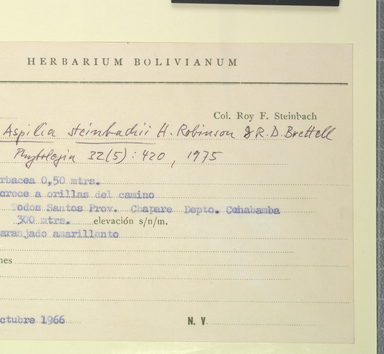 HERBARIUM BOLIVIANUM
Col. Roy F. Steinbach
Aspilia steinbachii H. Robinson & R. D. Brettell
Phytologia 32(5): 420, 1975
rbacea 0,50 mtrs.
orece a orillas del camino
Todos Santos Prov. Chapare Depto. Cohabamba
300 mtrs. elevación s/n/m.
aranjado amarillento
nes
ctubre 1966 N. V